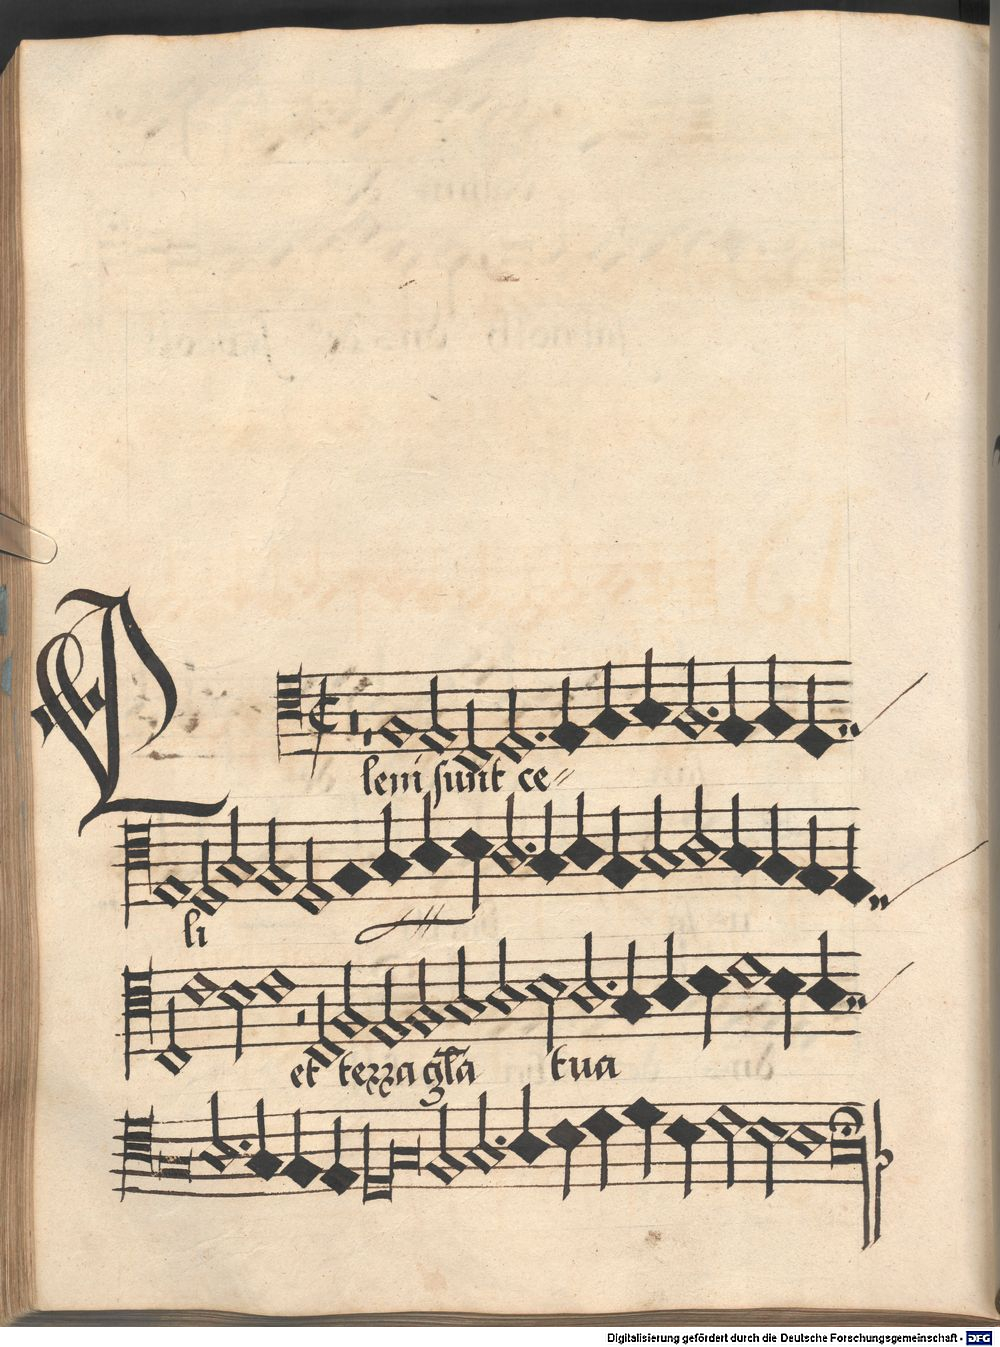 Pleni sunt ce
li
et terra gla tua
Digitalisierung gefördert durch die Deutsche Forschungsgemeinschaft - DFG